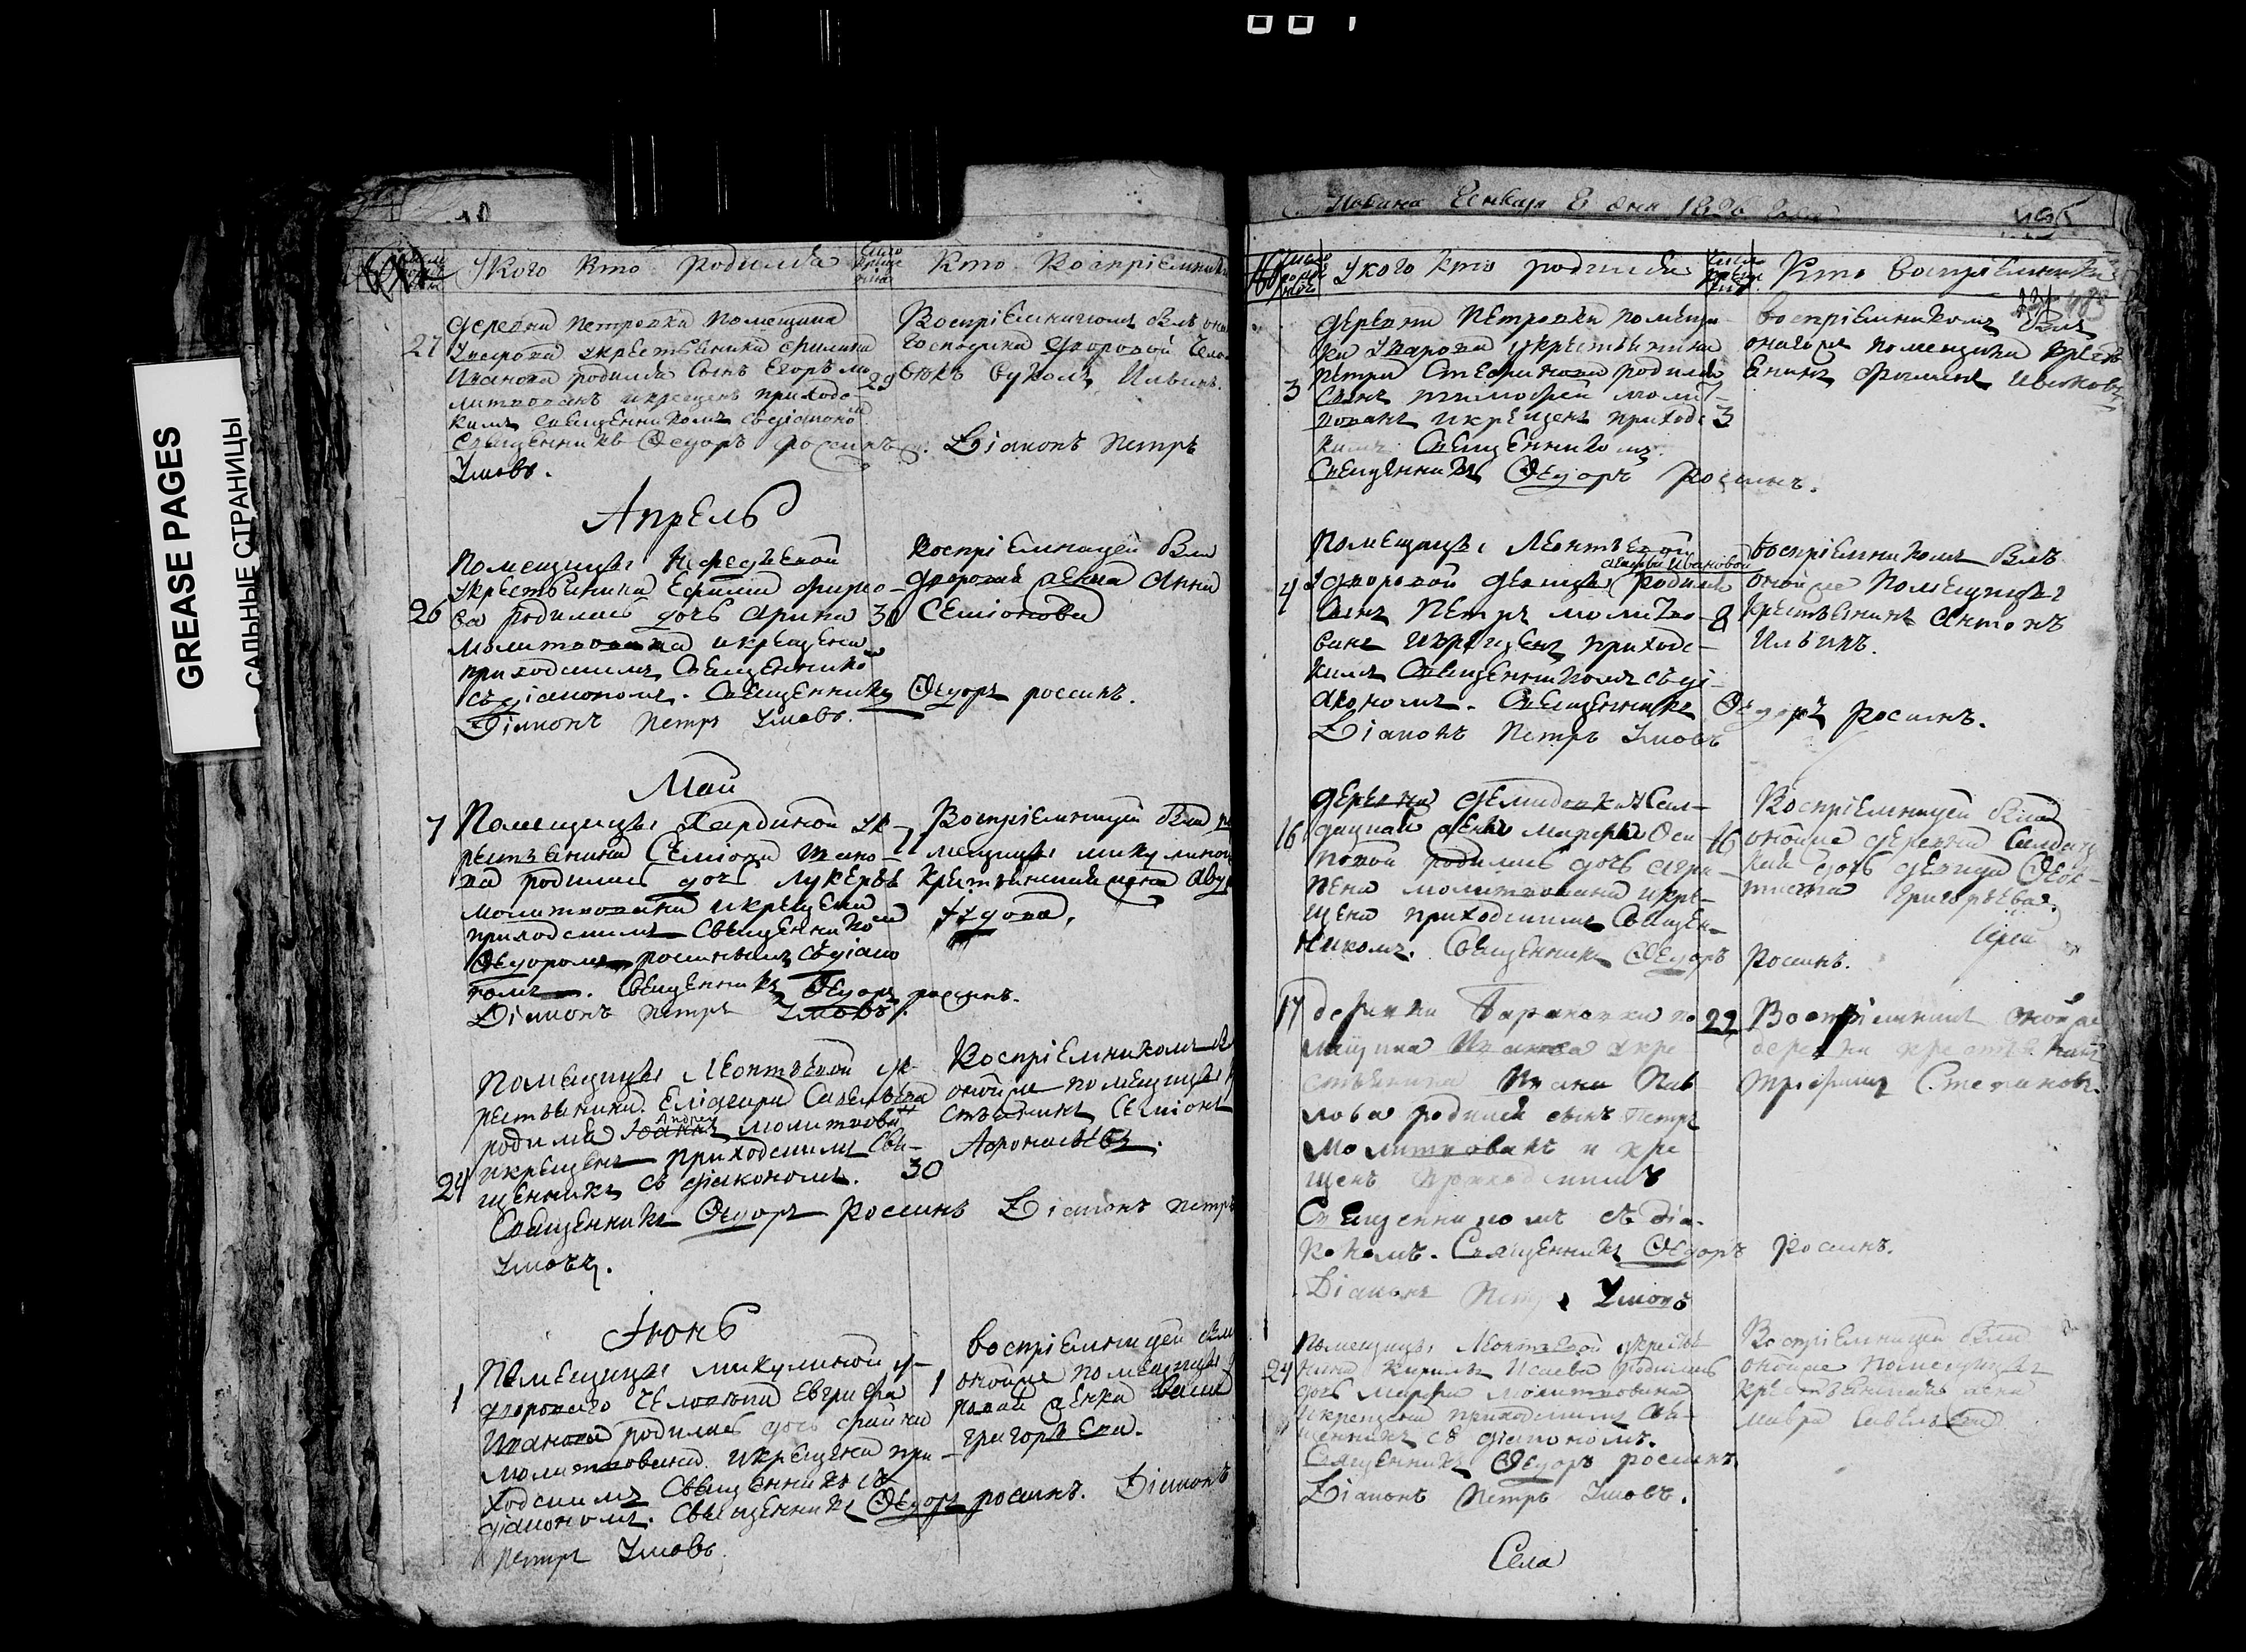 GREASE PAGES
САЛЬНЫЕ СТРАНИЦЫ
У кого кто родился
Кто Воспріемники
деревни Петровки Помещика
27 Уварова укрестьянина Филипа
Иванова родился сынъ Егоръ мо
29
литвованъ и крещенъ приходс-
кимъ Священникомъ съдіакономъ
Священникъ Ѳедоръ россинъ. Діаконъ Петръ
Умовъ.
Воспріемникомъ былъ
господина дворовой чело
векъ Вуколъ Ильинъ.
Апрель
Помещицы Нефедьевой
укрестьянина Ефима
26 ва родилась дочь Арина 30
молитвована и крещена
приходскимъ Священникомъ
съдіакономъ. Священникъ Ѳедоръ россинъ.
Діаконъ Петръ Умовъ.
Воспріемницей была
дворовая девка Анна
Семіонова
Май
7 Помещицы ук- 7
рестьянина Семіона
ва родилась дочь Лукерья
молитвована и крещена
приходскимъ Священникомъ
Ѳедоромъ россинымъ съдіако
номъ. Священникъ Ѳедоръ россинъ.
Діаконъ Петръ Умовъ.
Воспріемницей была по
мещицы микулиной
крестьянская жена
Помещицы Леонтьевой ук-
рестьянина Еліазара Савельева
Андрей
родился Іоаннъ молитвованъ
и крещенъ приходскимъ Свя-
24 щенникъ съ діакономъ. 30
Священникъ Ѳедоръ Россинъ Діаконъ петръ
Умовъ.
Воспріемникомъ
оной же помещицы
стьянинъ Семіонъ
Іюнь
Помещицы микулиной у-
1 двороваго человека Евграфа 1
Иванова родилась дочь
молитвована и крещена при-
ходскимъ Священникъ съ
діакономъ. Священникъ Ѳедоръ россинъ. Діаконъ
петръ Умовъ.
воспріемницей была
оной же помещицы
девка
григорьева.
дня 1826 года
У кого кто родился
Кто воспріемники
деревни Петровки помещи-
ка Уварова укрестьянина
петра родился
3 сынъ тимофей молит-
вованъ и крещенъ приходс 3
кимъ Священникомъ.
Священникъ Ѳедоръ Россинъ.
воспріемникомъ былъ
онаго же помещика крестья
Помещицы Леонтьевой
Ивановой
4 удворовой девицы родился
сынъ Петръ молитво- 8
ванъ и крещенъ приходс-
кимъ Священникомъ съ ді-
акономъ. Священникъ Ѳедоръ Россинъ.
Діаконъ Петръ Умовъ
воспріемникомъ былъ
оной же Помещицы
крестьянинъ Антонъ
Ильинъ.
деревни демидовки у Сал-
16 дацкай жены Марфы Оси- 16
повой родилась дочь Агри-
пена молитвована и кре-
щена приходскимъ Священ-
никомъ. Священникъ Ѳедоръ Россинъ.
Воспріемницей была
оной же деревни Салдатс
кая дочь девица Ѳеок-
тиста Григорьева.
17 деревни Таракановки по 29
мещика Иванова укре
стьянина Ивана Пав
лова родился сынъ Петръ
молитвованъ и кре
щенъ приходскимъ
Священникомъ съ діа-
кономъ. Священникъ Ѳедоръ Россинъ.
Діаконъ Петръ Умовъ
Воспріемникъ оной же
деревни крестьянинъ
трифонъ Степановъ.
Помещицы Леонтьевой укресть
24 нина Кирилы Исаева родилась
дочь Марфа молитвована
и крещена приходскимъ Свя-
щенникъ съ діакономъ.
Священникъ Ѳедоръ россинъ.
Діаконъ Петръ Умовъ.
Воспріемницей была
оной же помещицы
крестьянская жена
мавра Савельева
Села